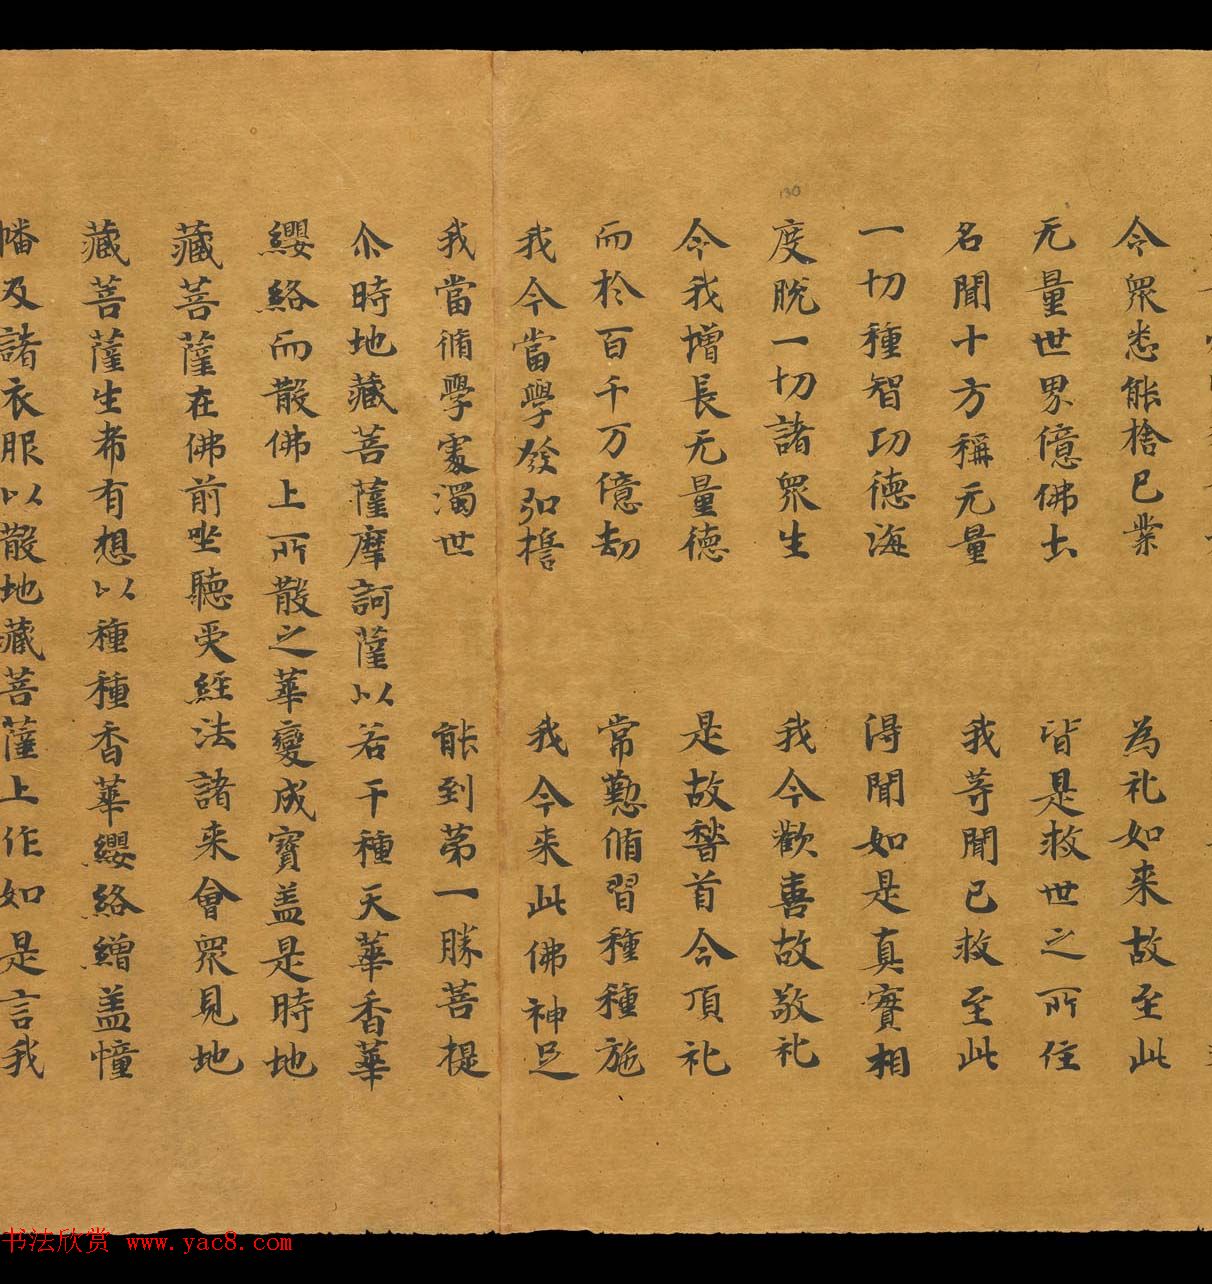 令衆悉能捨已業　為礼如来故至此
无量世界億佛土　皆是救世之所住
名聞十方稱无量　我等聞已救至此
一切種智功德海　得聞如是真實相
度脱一切諸衆生　我今歡喜故敬礼
令我增長无量德　是故䭬首今頂礼
而於百千万億劫　常懃脩習種種施
我今當學發弘誓　我今来此佛神足
我當脩學處濁世　能到第一勝菩提
尒時地藏菩薩摩訶薩以若干種天華香華
纓絡而散佛上所散之華變成寶盖是時地
藏菩薩在佛前坐聽受經法諸来會衆見地
藏菩薩生希有想以種種香華纓絡繒盖幢
幡及諸衣服以散地藏菩薩上作如是言我
130
书法欣赏 www.yac8.com